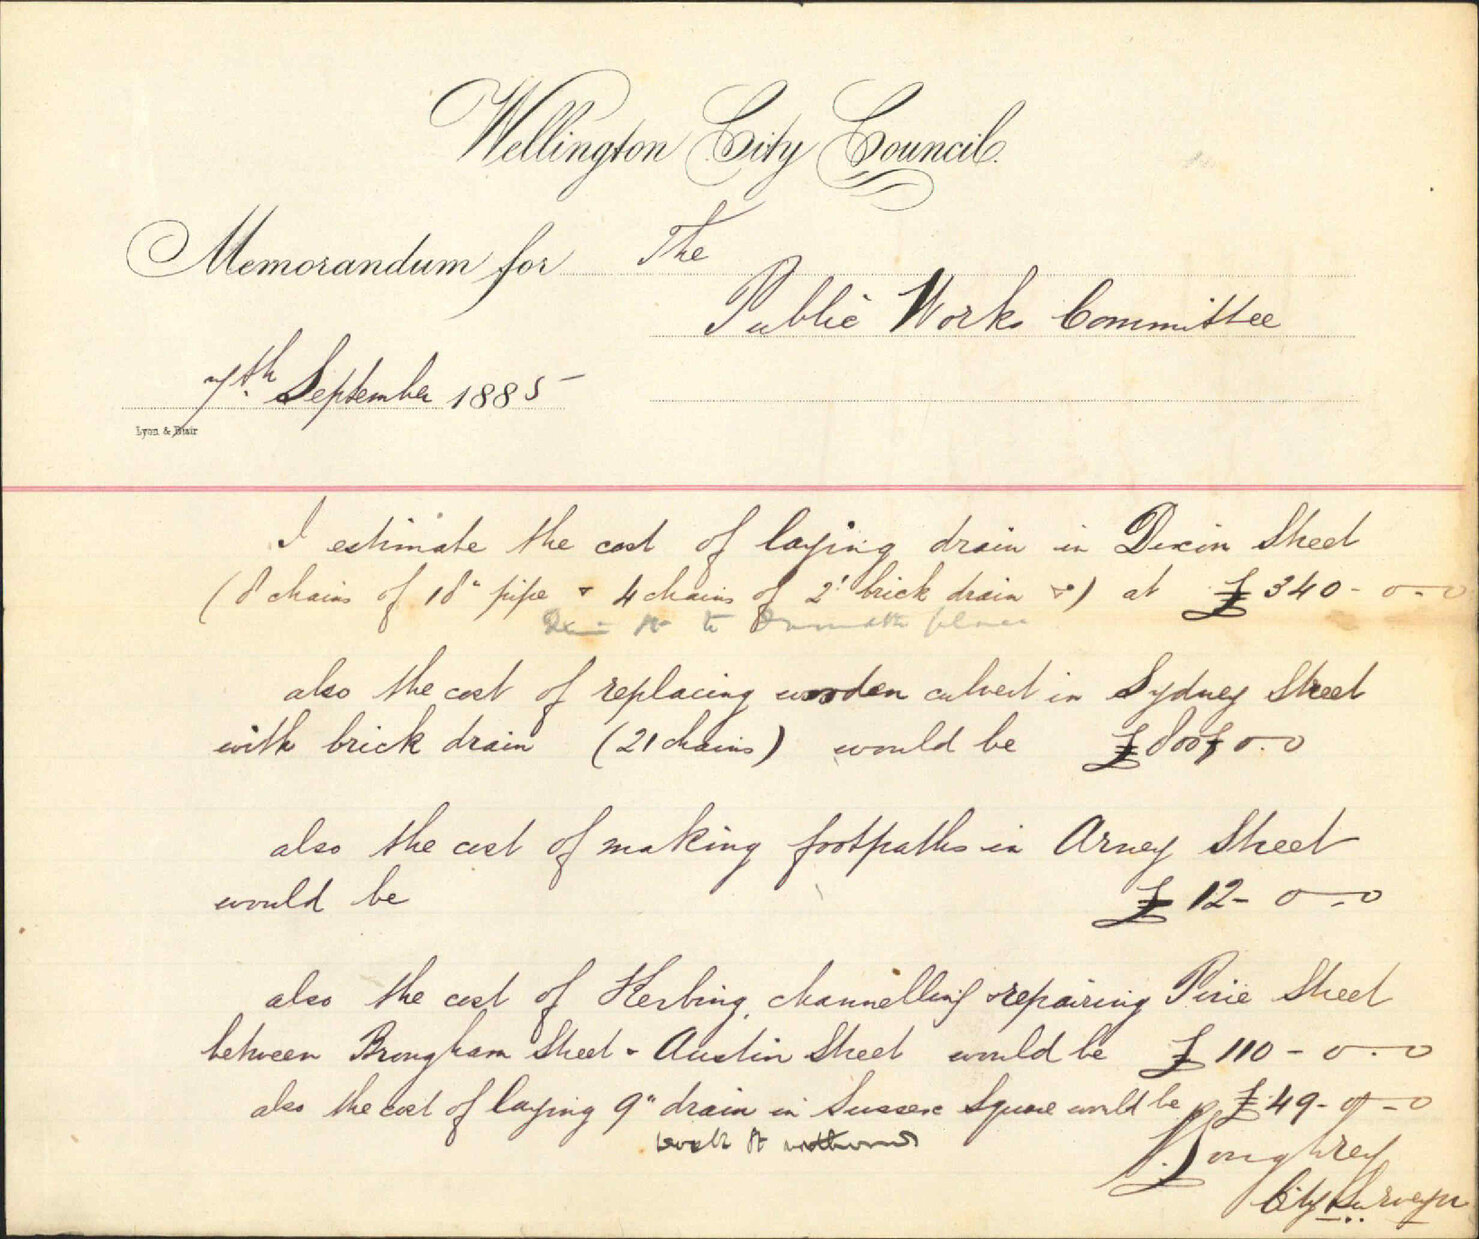 Wellington City Council.
Memorandum for The
Public Works Committee
7th. September 1885
Lyon & Blair
I estimate the cost of laying drain in Dixon Street
(8 chains of 18" pipe & 4 chains of 2' brick drain &c) at £340-0-0
Dixon St to
also the cost of replacing wooden culvert in Sydney Street
with brick drain (21 chains) would be £800-0-0
also the cost of making footpaths in Arney Street
would be £12-0-0
also the cost of Kerbing, channelling & repairing Pirie Street
between Brougham Street & Austin Street would be £110-0-0
also the cost of laying 9" drain in Sussex Square would be £49-0-0
St northwards
Loughrey
City Surveyor